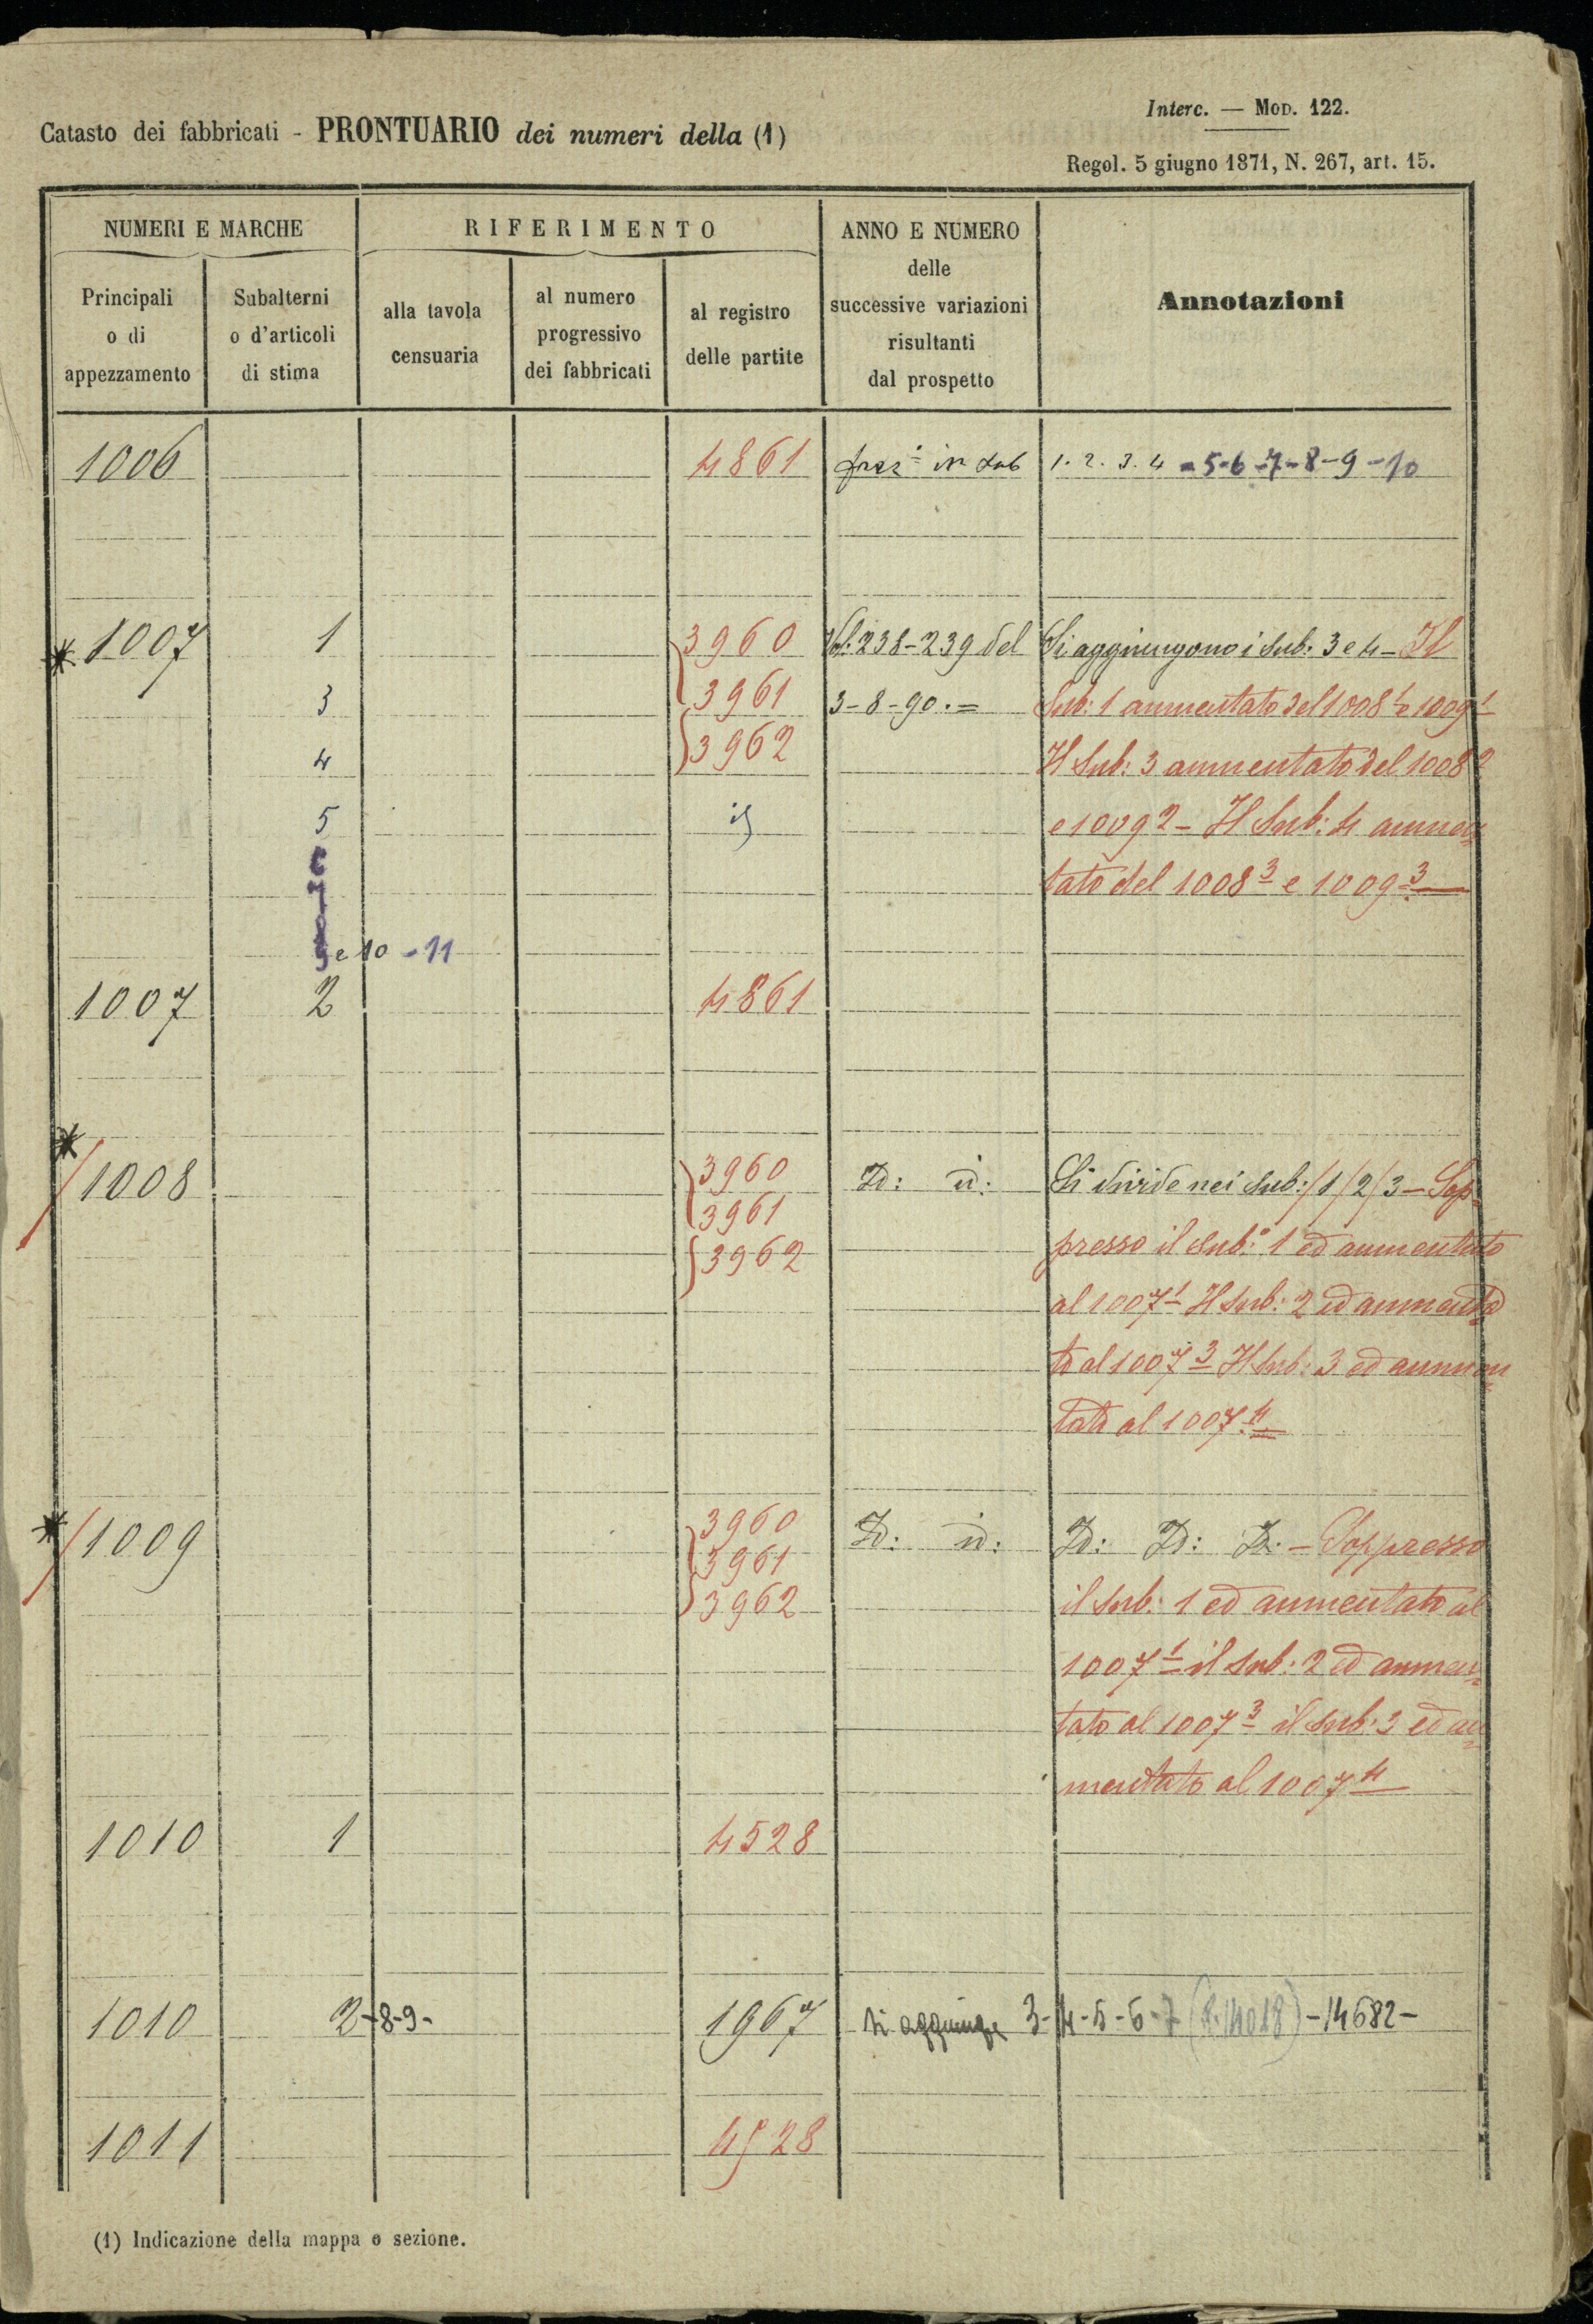 Interc. — Mod. 122.
Catasto dei fabbricati - PRONTUARIO dei numeri della (1)
Regol. 5 giugno 1871, N. 267, art. 15.
NUMERI E MARCHE
RIFERIMENTO
ANNO E NUMERO
delle
successive variazioni
risultanti
dal prospetto
Annotazioni
Principali
o di
appezzamento
Subalterni
o d'articoli
di stima
alla tavola
censuaria
al numero
progressivo
dei fabbricati
al registro
delle partite
1006 4861 in sub 1. 2. 3. 4 - 5-6-7-8-9-10
1007 1 3960 238-239 del Si aggiungono i Sub: 3 e 4 - Il
3 3961 3-8-90.= Sub: 1 aumentato del 1008 1 e 1009 1
4 3962 Il Sub: 3 aumentato del 1008 2
5 e 1009 2 - Il Sub: 4 aumen
6
7 tato del 1008 3 e 1009 3
9 e 10 - 11
1007 2 4861
1008 3960 Id: id: Si divide nei Sub: /1/2/3 - Sop
3961
presso il Sub: 1 ed aumentato
3962
al 1007 1 Il Sub: 2 ed aumenta
to al 1007 3 Il Sub: 3 ed aumen
tato al 1007 4
1009 3960 Id: id: Id: Id: Id: - Soppresso
3961
3962 il Sub: 1 ed aumentato al
1007 1 il Sub: 2 ed aumen
tato al 1007 3 il Sub: 3 ed au
mentato al 1007 4
1010 1 4528
1010 2-8-9- 1967 si aggiunge 3-4-5-6-7 -14682-
1011 4528
(1) Indicazione della mappa o sezione.